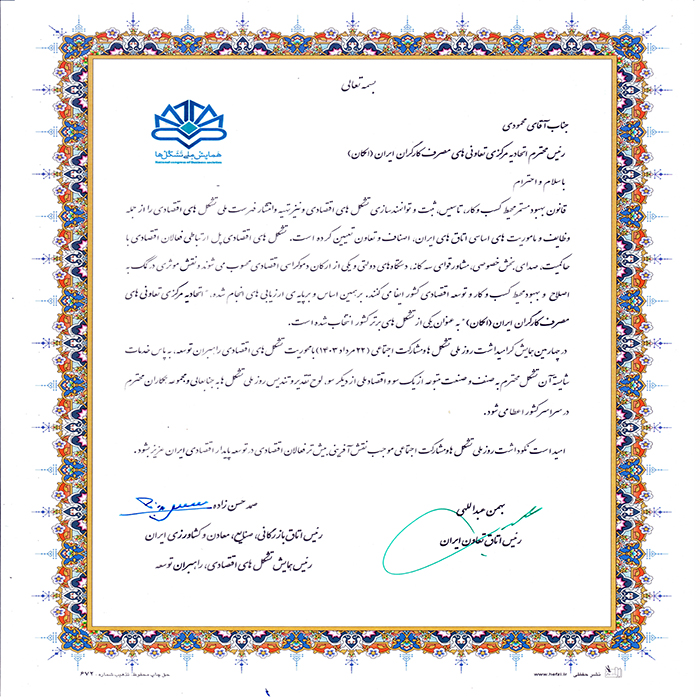 بسمه تعالی
همایش ملی تشکل‌ها
جناب آقای محمودی
رئیس محترم اتحادیه مرکزی تعاونی های مصرف کارگران ایران (امکان)
با سلام و احترام
قانون بهبود مستمر محیط کسب و کار، تاسیس، ثبت و توانمندسازی تشکل های اقتصادی و نیز تهیه و انتشار فهرست ملی تشکل های اقتصادی را از جمله
وظایف و ماموریت های اساسی اتاق های ایران، اصناف و تعاون تعیین کرده است. تشکل های اقتصادی پل ارتباطی فعالان اقتصادی با
حاکمیت، صدای بخش خصوصی، مشاور قوای سه گانه، دستگاه‌های دولتی و یکی از ارکان دموکراسی اقتصادی محسوب می شوند و نقش موثری در کمک به
اصلاح و بهبود محیط کسب و کار و توسعه اقتصادی کشور ایفا می کنند. بر همین اساس و بر پایه ی ارزیابی های انجام شده، "اتحادیه مرکزی تعاونی های
مصرف کارگران ایران (امکان)" به عنوان یکی از تشکل های برتر کشور انتخاب شده است.
در چهارمین همایش گرامیداشت روز ملی تشکل ها و مشارکت اجتماعی (۲۲ مرداد ۱۴۰۳) با محوریت تشکل های اقتصادی راهبران توسعه، به پاس خدمات
شایسته آن تشکل محترم به صنعت و صنعت متبوعه از یک سو و اقتصاد ملی از دیگر سو، لوح تقدیر و تندیس روز ملی تشکل ها به جنابعالی و مجموعه همکاران محترم
در سراسر کشور اعطا می شود.
امید است نکوداشت روز ملی تشکل ها و مشارکت اجتماعی موجب نقش آفرینی بیش تر فعالان اقتصادی در توسعه پایدار اقتصادی ایران عزیز بشود.
صمد حسن زاده
رئیس اتاق بازرگانی، صنایع، معادن و کشاورزی ایران
رئیس همایش تشکل های اقتصادی، راهبران توسعه
بهمن عبداللهی
رئیس اتاق تعاون ایران
نشر حفظی www.hefzi.ir
حق چاپ محفوظ تذهیب شماره: ۶۷۲